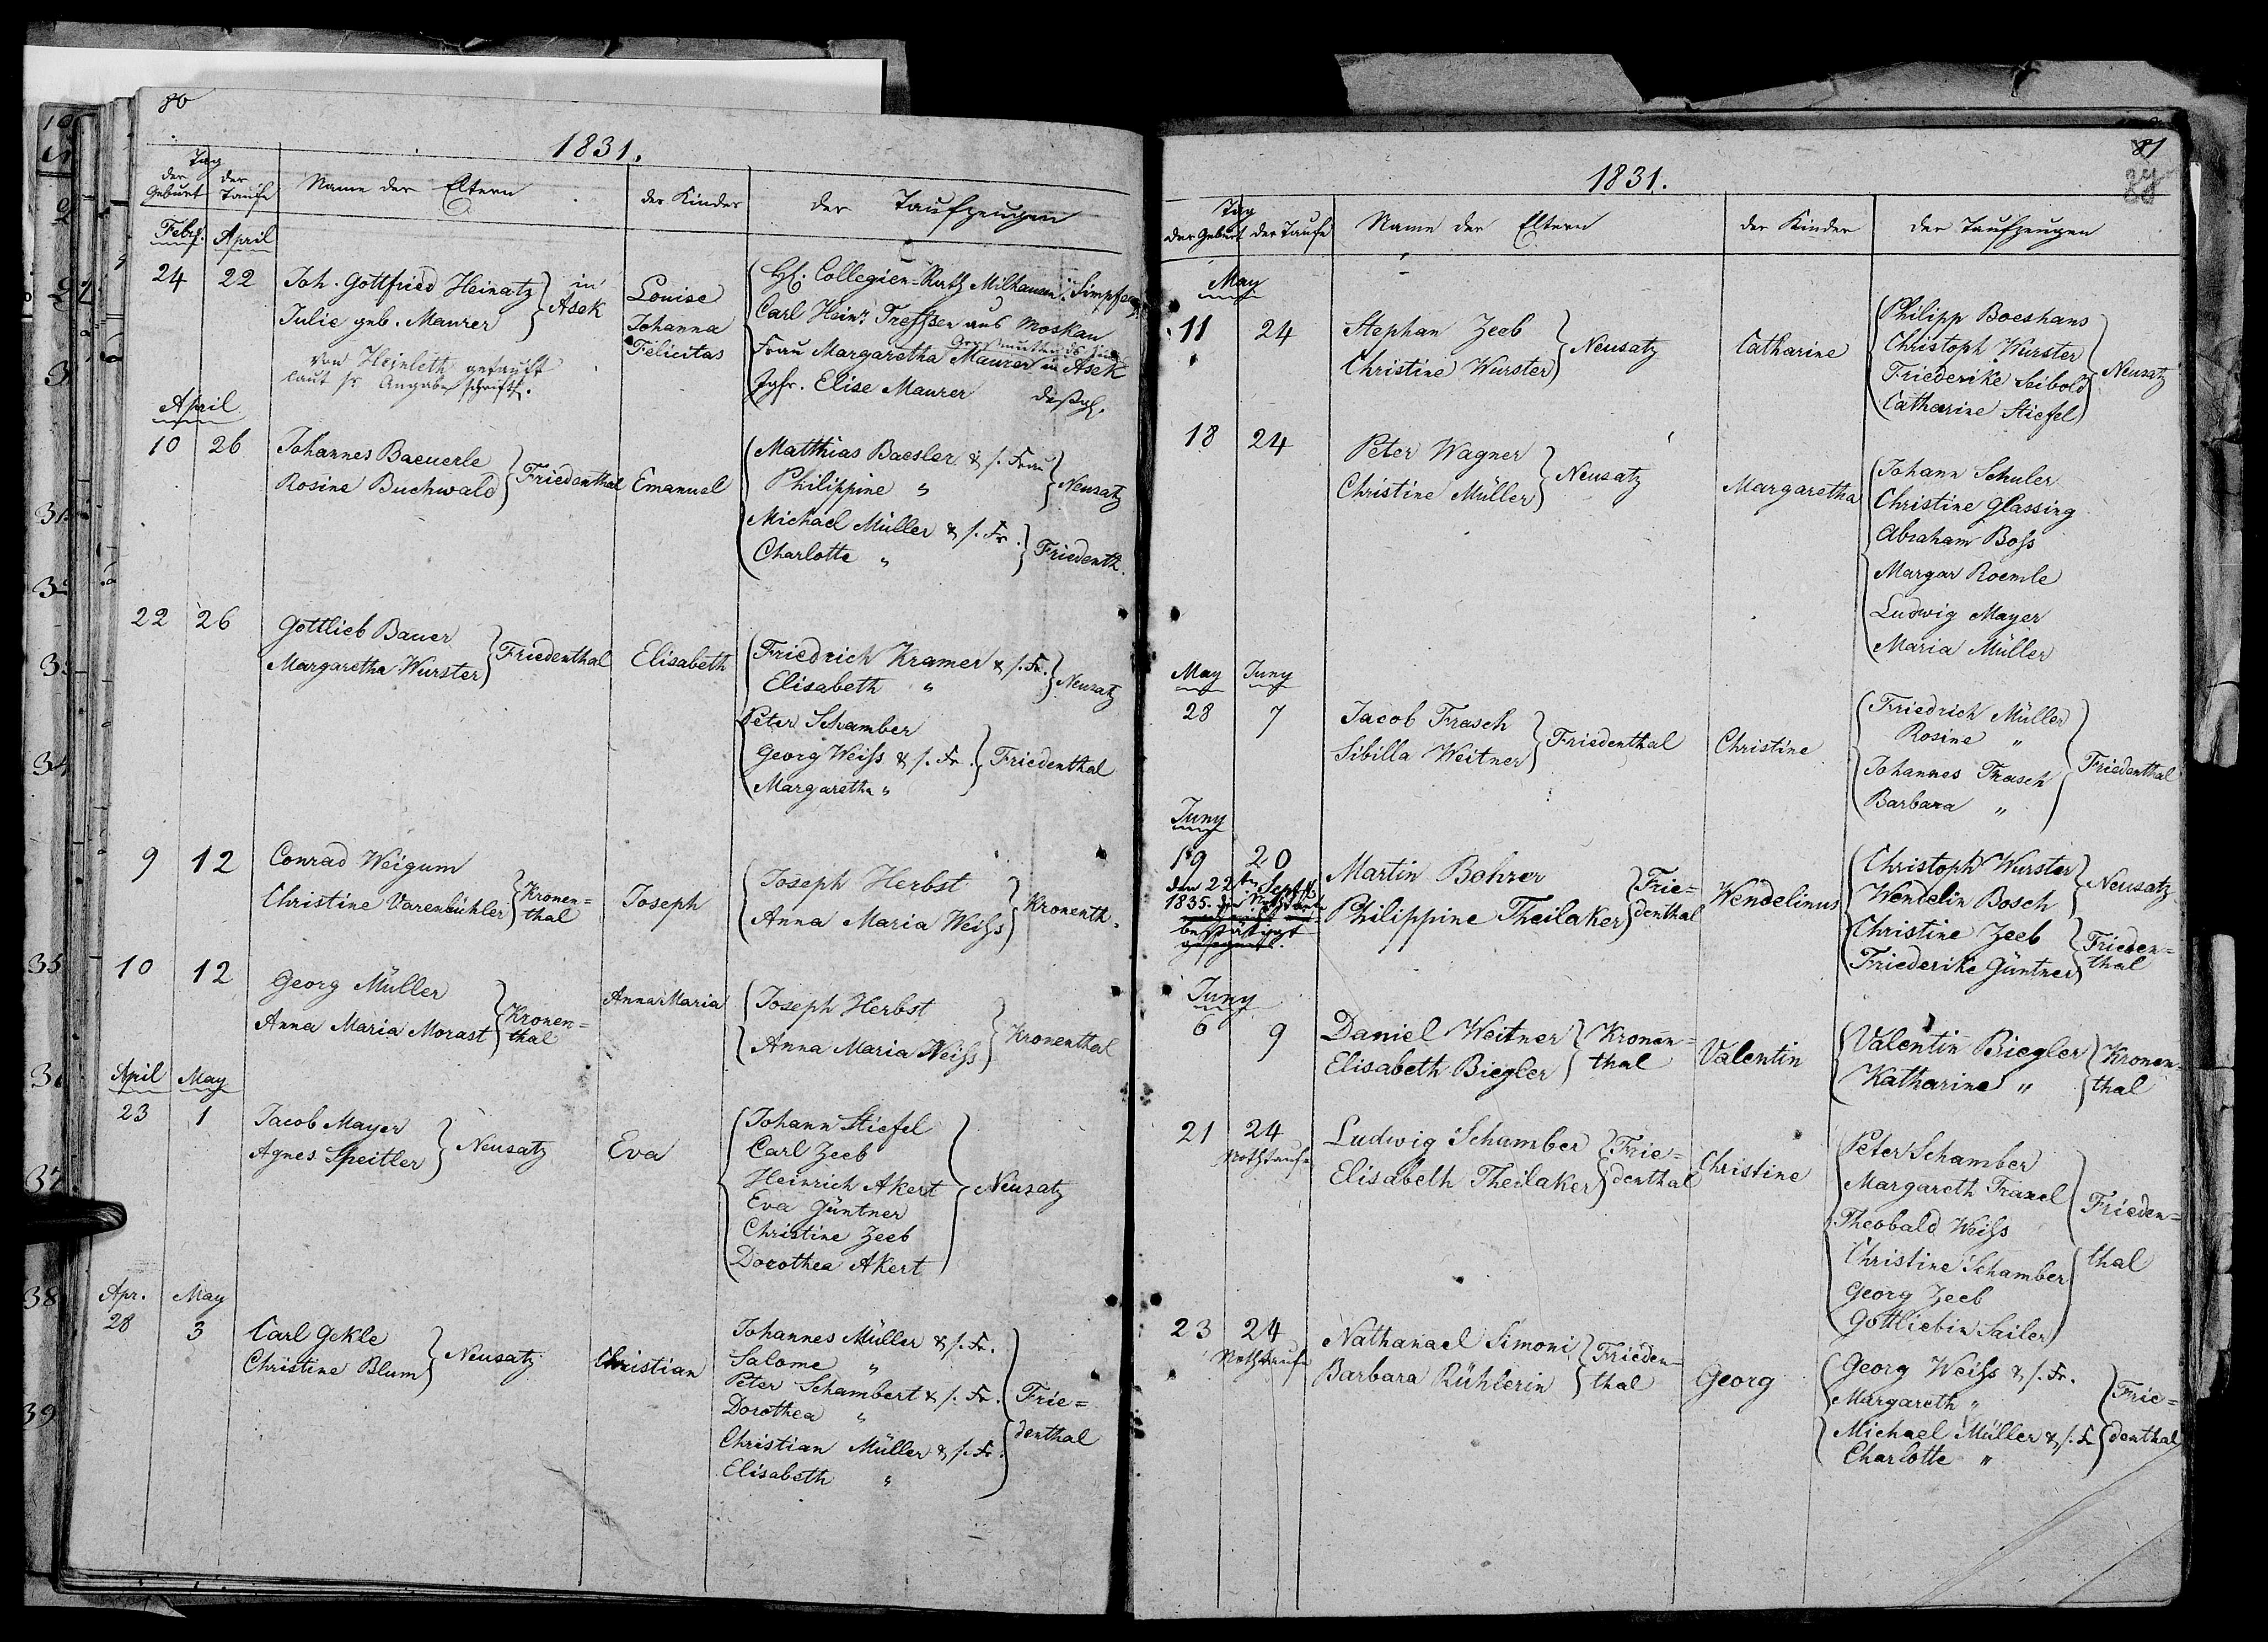 80
1831.
Tag
der Geburt
der Taufe
Name der Eltern
der Kinder
der Taufzeugen
Febr. April
24 22 Joh. Gottfried Heinatz
Julie geb. Maurer
in Asek
von Heinleth getauft
laut sr. Angabe schriftl.
Louise
Johanna
Felicitas
H. Collegien-Rath Milhausen
Carl Heinr. Treffsen aus Moskau
Frau Margaretha Maurer in Asek
Jgfr. Elise Maurer
April
10 26 Johannes Baeuerle
Rosine Buchwald
Friedenthal
Emanuel
Matthias Baesler & s. Frau
Philippine "
Neusatz
Michael Müller & s. Fr.
Charlotte "
Friedenth.
22 26 Gottlieb Bauer
Margaretha Wurster
Friedenthal
Elisabeth
Friedrich Kramer & s. Fr.
Elisabeth "
Neusatz
Peter Schamber
Georg Weiss & s. Fr.
Margaretha "
Friedenthal
9 12 Conrad Weigum
Christine Varenbühler
Kronen=
thal
Joseph
Joseph Herbst
Anna Maria Weiss
Kronenth.
10 12 Georg Müller
Anna Maria Morast
Kronen=
thal
Anna Maria
Joseph Herbst
Anna Maria Weiss
Kronenthal
April May
23 1 Jacob Mayer
Agnes Speitler
Neusatz
Eva
Johann Stiefel
Carl Zeeb
Heinrich Akert
Eva Güntner
Christine Zeeb
Dorothea Akert
Neusatz
Apr. May
28 3 Carl Gekle
Christine Blum
Neusatz
Christian
Johannes Müller & s. Fr.
Salome "
Peter Schambert & s. Fr.
Dorothea "
Christian Müller & s. Fr.
Elisabeth "
Frie=
denthal
81
1831.
Tag
der Geburt der Taufe
Name der Eltern
der Kinder
der Taufzeugen
May
11 24 Stephan Zeeb
Christine Wurster
Neusatz
Catharine
Philipp Boeshans
Christoph Wurster
Friederike Seibold
Catharine Stiefel
Neusatz
18 24 Peter Wagner
Christine Müller
Neusatz
Margaretha
Johann Schuler
Christine Glassing
Abraham Boss
Margar Roemle
Ludwig Mayer
Maria Müller
May Juny
28 7 Jacob Frasch
Sibilla Weitner
Friedenthal
Christine
Friedrich Müller
Rosine "
Johannes Frasch
Barbara "
Friedenthal
Juny
19 20 Martin Bohrer
Philippine Theilaker
Frie=
denthal
den 22ten Septb.
1835.
bestätigt
Wendelinus
Christoph Wurster
Wendelin Bosch
Neusatz
Christine Zeeb
Friederike Güntner
Frieden=
thal
Juny
6 9 Daniel Weitner
Elisabeth Biegler
Kronen=
thal
Valentin
Valentin Biegler
Katharine "
Kronen=
thal
21 24 Ludwig Schamber
Nothtaufe
Elisabeth Theilaker
Frie=
denthal
Christine
Peter Schamber
Margareth Traxel
Theobald Weiss
Christine Schamber
Georg Zeeb
Gottliebin Sailer
Frieden=
thal
23 24 Nathanael Simoni
Nothtaufe
Barbara Rühlerin
Frieden=
thal
Georg
Georg Weiss & s. Fr.
Margareth "
Michael Müller & s. Fr.
Charlotte "
Frie=
denthal